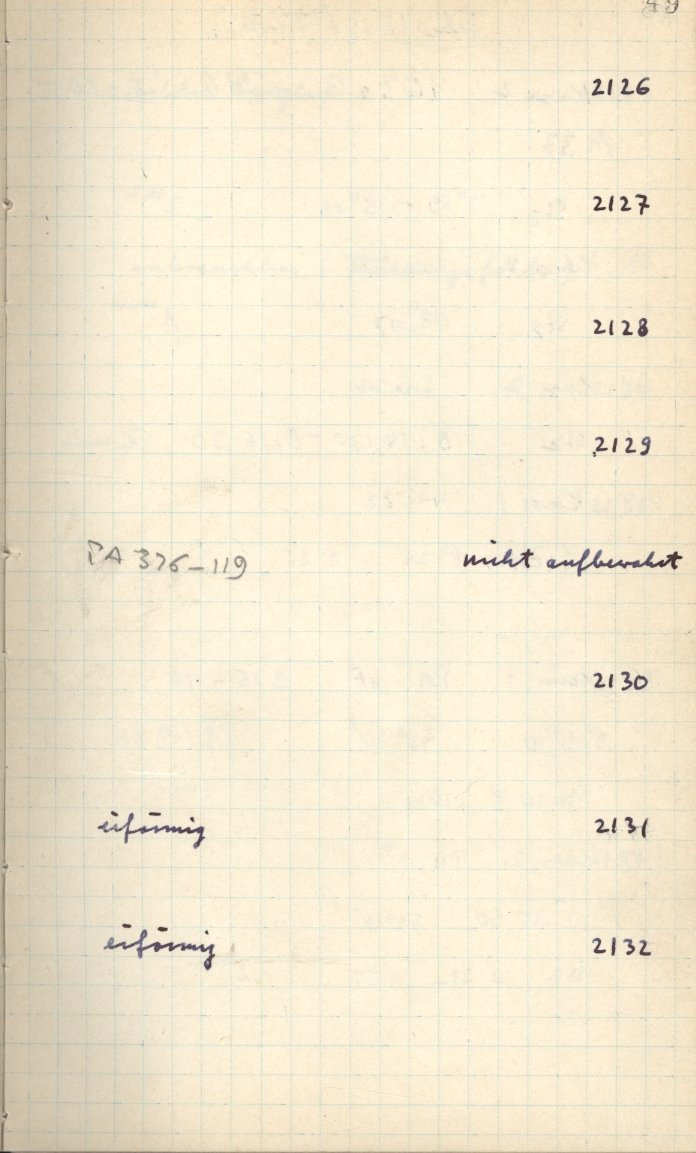 49
2126
2127
2128
2129
TA 376-119 nicht aufbewahrt
2130
eiförmig 2131
eiförmig 2132